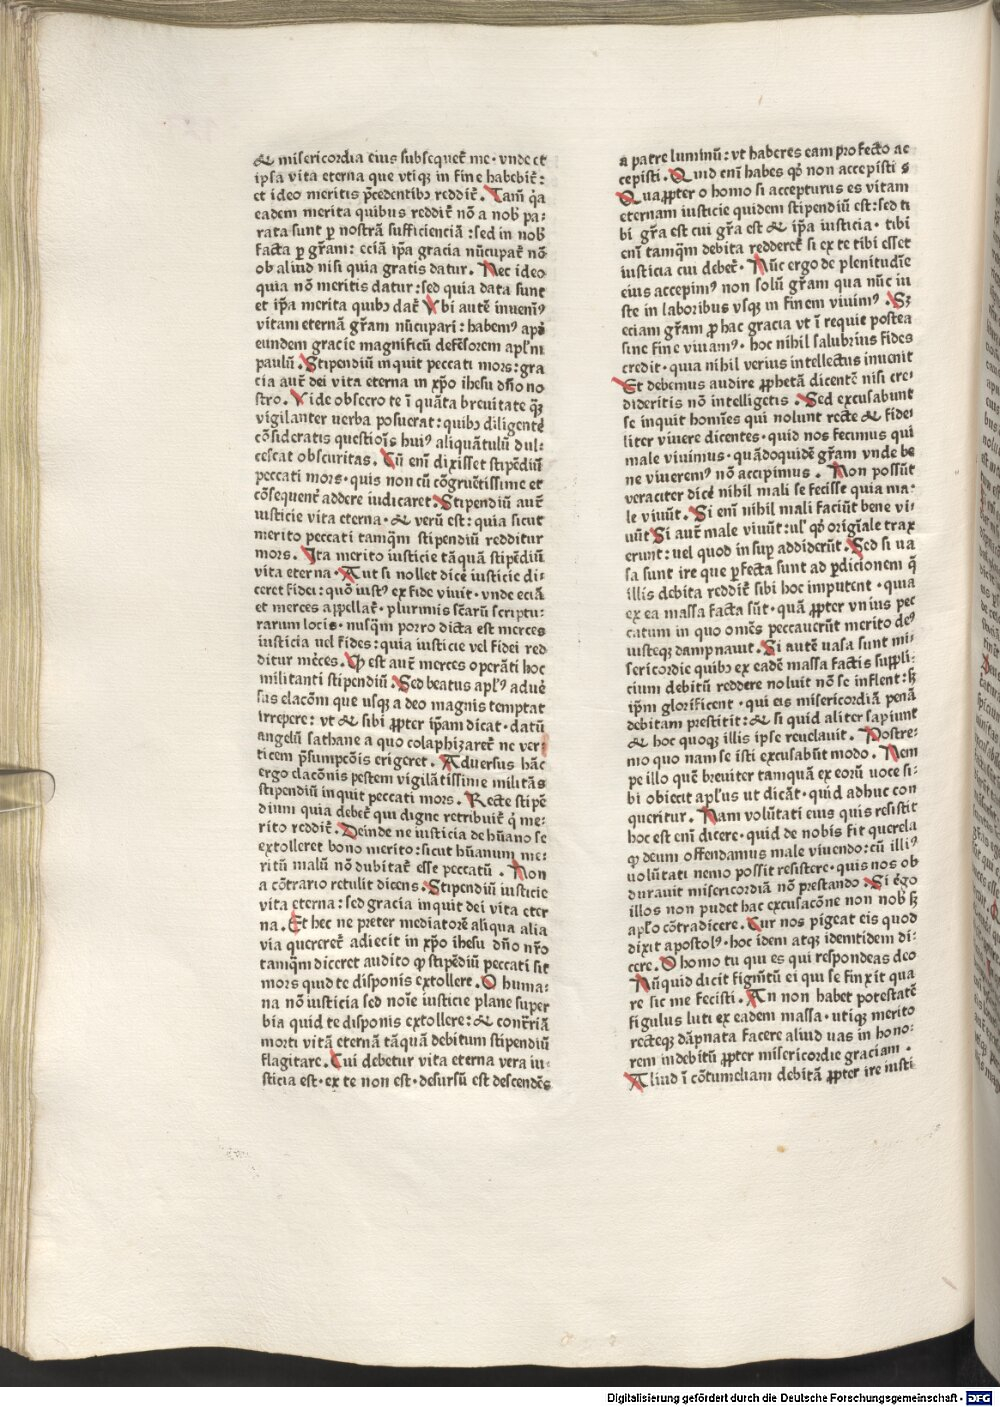 & misericordia eius subsequet᷑ me·vnde et
ipsa vita eterna que vtiqꝫ in fine habebit᷑:
et ideo meritis p̄cedentibꝫ reddit᷑. Tam̄ q̇a
eadem merita quibus reddit᷑ nō a nob̄ pa-
rata sunt ꝑ nostrā sufficienciā:sed in nob̄
facta ꝑ gr̄am: eciā ip̄a gracia nūcupat᷑ nō
ob aliud nisi quia gratis datur. Nec ideo
quia nō meritis datur:sed quia data sunt
et ip̄a merita quibꝫ dat᷑ Vbi autē inuenimꝰ
vitam eternā gr̄am nūcupari: habemꝰ apđ
eundem gracie magnificū defēsorem apl̄m
paulū. Stipendiū inquit peccati mors:gra
cia aut̄ dei vita eterna in xp̄o ihesu dn̄o no
stro. Vide obsecro te ī quāta breuitate q̄ꝫ
vigilanter uerba posuerat:quibꝫ diligentē
cōsideratis questiōis huiꝰ aliquātulū dul-
cescat obscuritas. Cū eni dixisset stipēdiū
peccati mors·quis non cū cōgruētissime et
cōsequent᷑ addere iudicaret Stipendiū aut̄
iusticie vita eterna·& verū est: quia sicut
merito peccati tamqm̄ stipendiū redditur
mors. Ita merito iusticie tāquā stipēdiū
vita eterna·Aut si nollet dicē iusticie di-
ceret fidei: quō iustꝰ ex fide viuit·vnde eciā
et merces appellat᷑·plurimis sc̄arū scriptu-
rarum locis·nusqm̄ porro dicta est merces
iusticia uel fides:quia iusticie vel fidei red
ditur mēces. Qͥ est aut̄ merces operāti hoc
militanti stipendiū. Sed beatus aplꝰ aduē
sus elacōm que usqꝫ a deo magnis temptat
irrepere: vt & sibi ꝓpter ip̄am dicat·datū
angelū sathane a quo colaphizaret᷑ ne ver-
ticem p̄sumpcōis erigeret. Aduersus hāc
ergo elacōnis pestem vigilātissime militās
stipendiū inquit peccati mors. Recte stipē
dium quia debet᷑ qui digne retribuit᷑ q̇ me-
rito reddit᷑. Deinde ne iusticia de hūano se
extolleret bono merito:sicut hūanum me-
ritū malū nō dubitat᷑ esse peccatū. Non
a cōtrario retulit dicens. Stipendiū iusticie
vita eterna: sed gracia inquit dei vita eter
na. Et hec ne preter mediatorē aliqua alia
via quereret᷑ adiecit in xp̄o ihesu dn̄o nr̄o
tamqm̄ diceret audito qͥ stipēdiū peccati sit
mors quid te disponis extollere. O huma-
na nō iusticia sed noīe iusticie plane super
bia quid te disponis extollere:& cont᷑riā
morti vitā eternā tāquā debitum stipendiū
flagitare. Cui debetur vita eterna vera iu-
sticia est·ex te non est·desursū est descendēs
a patre luminū: vt haberes eam profecto ac
cepisti. Quid eni habes qđ non accepisti s
Quaꝓpter o homo si accepturus es vitam
eternam iusticie quidem stipendiū est:sed ti
bi gr̄a est cui gr̄a est & ip̄a iusticia·tibi
eni tamqm̄ debita redderet᷑ si ex te tibi esset
iusticia cui debet᷑. Nūc ergo de plenitudīe
eius accepimꝰ non solū gr̄am qua nūc iu
ste in laboribus vsqꝫ in finem viuimꝰ. Sꝫ
eciam gr̄am ꝓ hac gracia vt ī requie postea
sine fine viuamꝰ· hoc nihil salubrius fides
credit·quia nihil verius intellectus inuenit
Et debemus audire ꝓphetā dicentē nisi cre-
dideritis nō intelligetis. Sed excusabunt
se inquit homīes qui nolunt recte & fidei
liter viuere dicentes·quid nos fecimus qui
male viuimus·quādoquidē gr̄am vnde be
ne viueremꝰ nō accipimus. Non possūt
veraciter dicē nihil mali se fecisse quia ma-
le viuūt. Si eni nihil mali faciūt bene vi-
uūt Si aut̄ male viuūt:ul' qđ origīale trax
erunt:uel quod insuꝑ addiderūt. Sed si ua
sa sunt ire que ꝑfecta sunt ad ꝑdicionem q̄
illis debita reddit᷑ sibi hoc imputent·quia
ex ea massa facta sūt·quā ꝓpter vnius pec
catum in quo omēs peccauerūt merito deꝰ
iusteqꝫ dampnauit. Si autē uasa sunt mi-
sericordie quibꝫ ex eadē massa factis suppli-
cium debitū reddere noluit nō se inflent:sꝫ
ip̄m glorificent·qui eis misericordiā penā
debitam prestitit:& si quid aliter sapiunt
& hoc quoqꝫ illis ipse reuelauit. Postre-
mo quo nam se isti excusabūt modo. Nem
pe illo quē breuiter tamquā ex eorū uoce si-
bi obiecit aplꝰus ut dicāt·quid adhuc con
queritur. Nam volūtati eius quis resistit
hoc est eni dicere·quid de nobis fit querela
qͥ deum offendamus male viuendo:cū illiꝰ
uolūtati nemo possit resistere·quis nos ob
durauit misericordiā nō prestando. Si ego
illos non pudet hac excusacōne non nob̄ sꝫ
apl̄o cōtradicere. Cur nos pigeat eis quod
dixit apostolꝰ·hoc idem atqꝫ idemtidem di-
cere. O homo tu qui es qui respondeas deo
Nūquid dicit figmētū ei qui se finxit qua
re sic me fecisti. An non habet potestatē
figulus luti ex eadem massa·utiqꝫ merito
recteqꝫ dāpnata facere aliud uas in hono-
rem indebitū ꝓpter misericordie graciam.
Aliud ī cōtumeliam debitā ꝓpter ire iusti
Digitalisierung gefördert durch die Deutsche Forschungsgemeinschaft - DFG